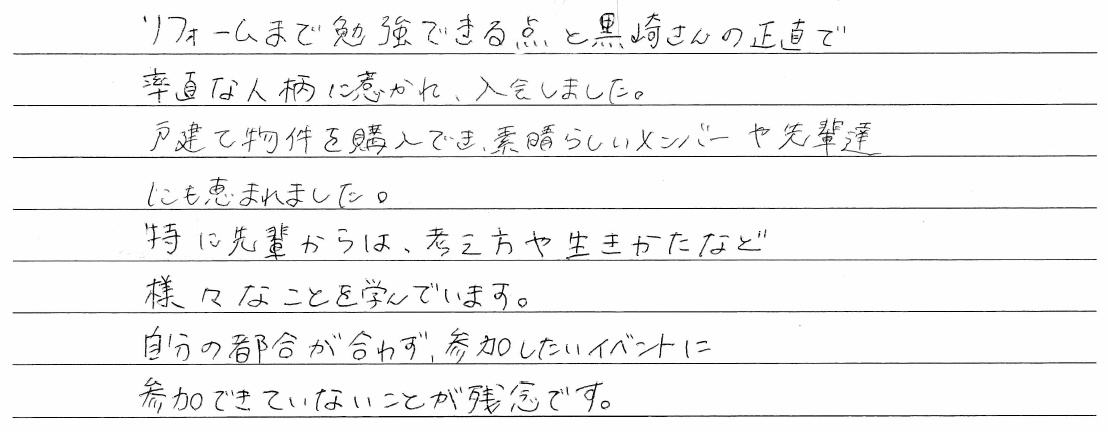 リフォームまで勉強できる点と黒崎さんの正直で
率直な人柄に惹かれ、入会しました。
戸建て物件を購入でき、素晴らしいメンバーや先輩達
にも恵まれました。
特に先輩からは、考え方や生きかたなど
様々なことを学んでいます。
自分の都合が合わず、参加したいイベントに
参加できていないことが残念です。